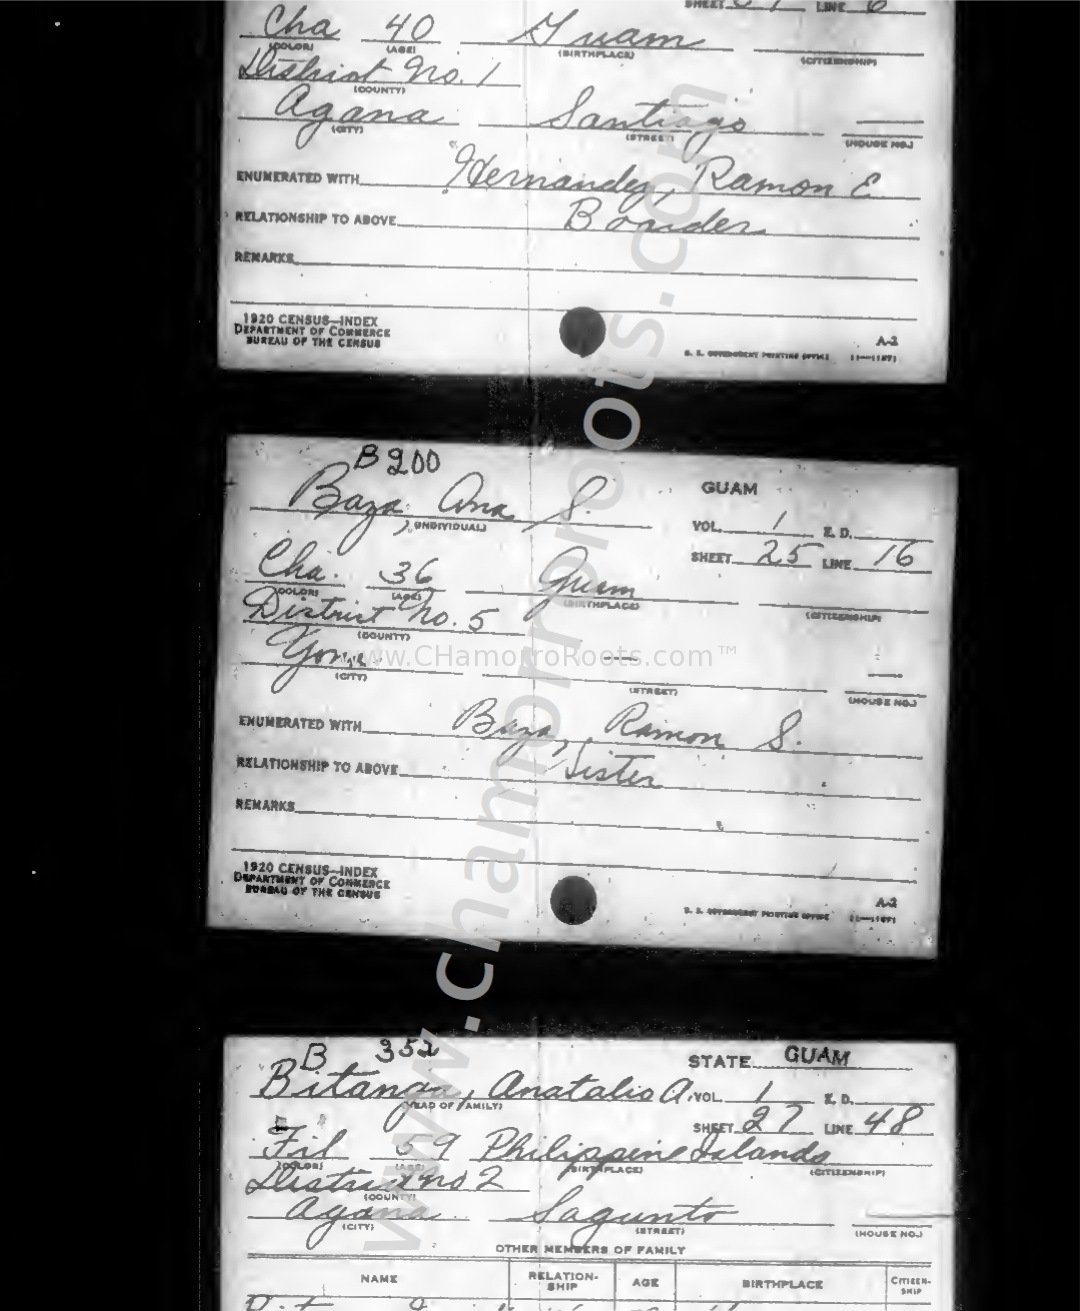 SHEET LINE 6
Cha 40 Guam
(COLOR) (AGE) (BIRTHPLACE) (CITIZENSHIP)
District No. 1
(COUNTY)
Agana Santiago —
(CITY) (STREET) (HOUSE NO.)
ENUMERATED WITH Hernandez, Ramon E
RELATIONSHIP TO ABOVE Boarder
REMARKS
1920 CENSUS—INDEX
DEPARTMENT OF COMMERCE
BUREAU OF THE CENSUS
A-2
U. S. GOVERNMENT PRINTING OFFICE
B 200
GUAM
Baza, Ana S.
(INDIVIDUAL)
VOL. 1 E. D.
SHEET 25 LINE 16
Cha. 36 Guam
(COLOR) (AGE) (BIRTHPLACE) (CITIZENSHIP)
District No. 5
(COUNTY)
Yona — —
(CITY) (STREET) (HOUSE NO.)
www.CHamorroRoots.com™
ENUMERATED WITH Baza, Ramon S.
RELATIONSHIP TO ABOVE Sister
REMARKS
1920 CENSUS—INDEX
DEPARTMENT OF COMMERCE
BUREAU OF THE CENSUS
A-2
U. S. GOVERNMENT PRINTING OFFICE
www.chamorroroots.com
B 352
STATE GUAM
Bitanga, Anatalio A.
(HEAD OF FAMILY)
VOL. 1 E. D.
SHEET 27 LINE 48
Fil 59 Philippine Islands
(COLOR) (AGE) (BIRTHPLACE) (CITIZENSHIP)
District No 2
(COUNTY)
Agana Sagunto
(CITY) (STREET) (HOUSE NO.)
OTHER MEMBERS OF FAMILY
NAME RELATION-SHIP AGE BIRTHPLACE CITIZEN-SHIP